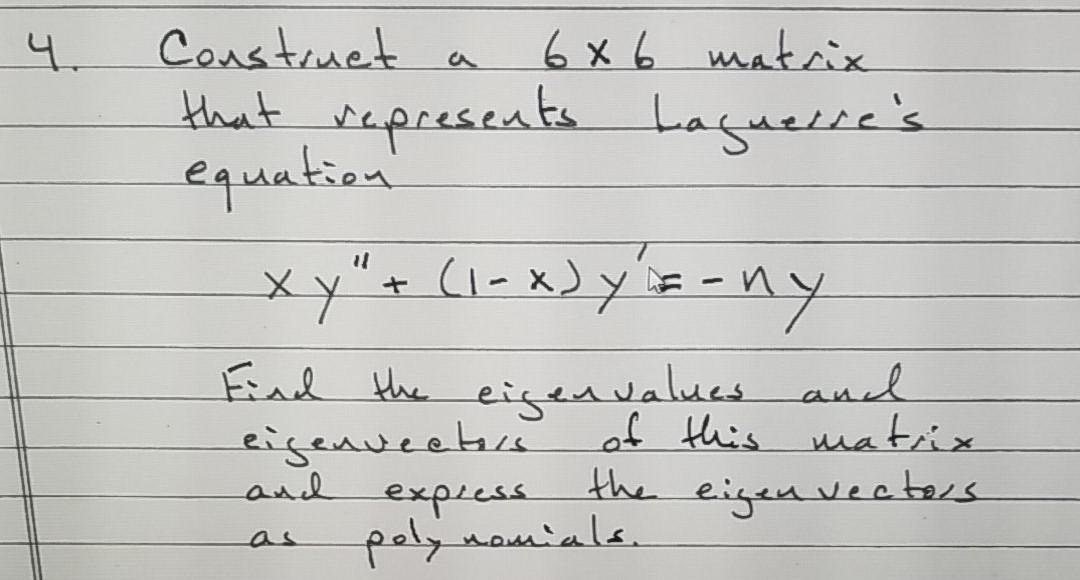 4. Construct a 6×6 matrix
that represents Laguerre's
equation
xy" + (1-x)y' = -ny
Find the eigenvalues and
eigenvectors of this matrix
and express the eigenvectors
as polynomials.